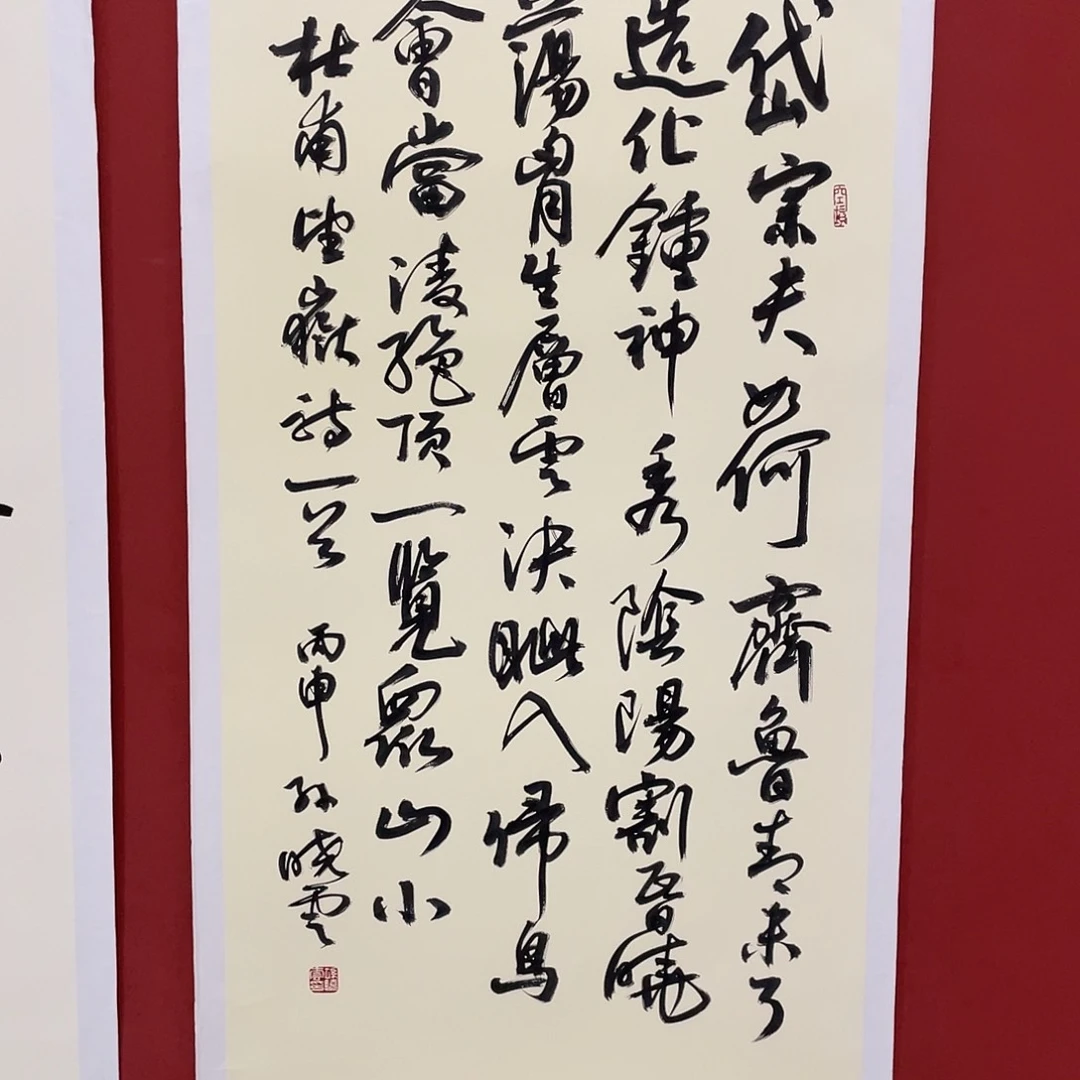 岱宗夫如何齊魯青未了
造化鍾神秀陰陽割昏曉
蕩胷生層雲決眦入歸鳥
會當凌絕頂一覽眾山小
杜甫望嶽詩一首 丙申 孙曉雲